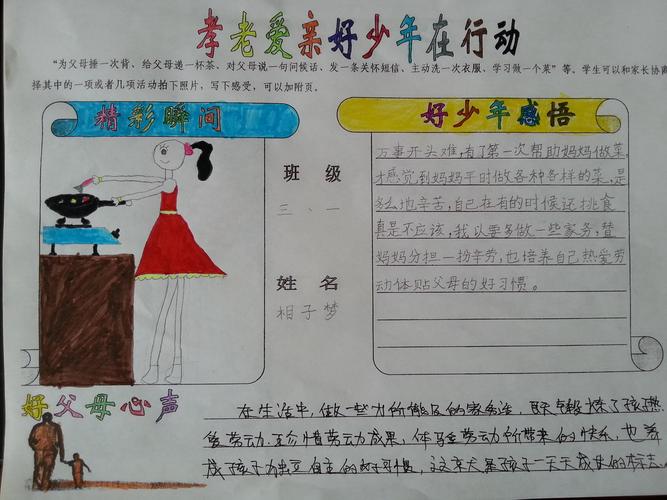 孝老爱亲好少年在行动
“为父母捶一次背、给父母递一杯茶、对父母说一句问候话、发一条关怀短信、主动洗一次衣服、学习做一个菜”等。学生可以和家长协商
择其中的一项或者几项活动拍下照片，写下感受，可以加附页。
精彩瞬间
班级
三、一
姓名
相子梦
好少年感悟
万事开头难，有了第一次帮助妈妈做菜，
才感觉到妈妈平时做各种各样的菜，是
多么地辛苦，自己在有的时候还挑食
真是不应该，我以要多做一些家务，替
妈妈分担一扮辛劳，也培养自己热爱劳
动体贴父母的好习惯。
好父母心声
在生活中，做一些力所能及的家务活，既锻炼了孩子热
爱劳动、珍惜劳动成果，体验劳动所带来的快乐，也养
成孩子独立自主的好习惯，这是孩子一天天成长的标志。